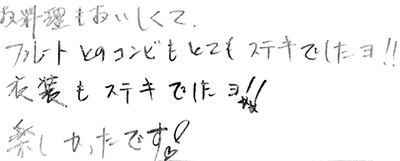 お料理もおいしくて、
フルートとのコンビもとてもステキでしたヨ!!
衣装もステキでしたヨ!!
楽しかったです!